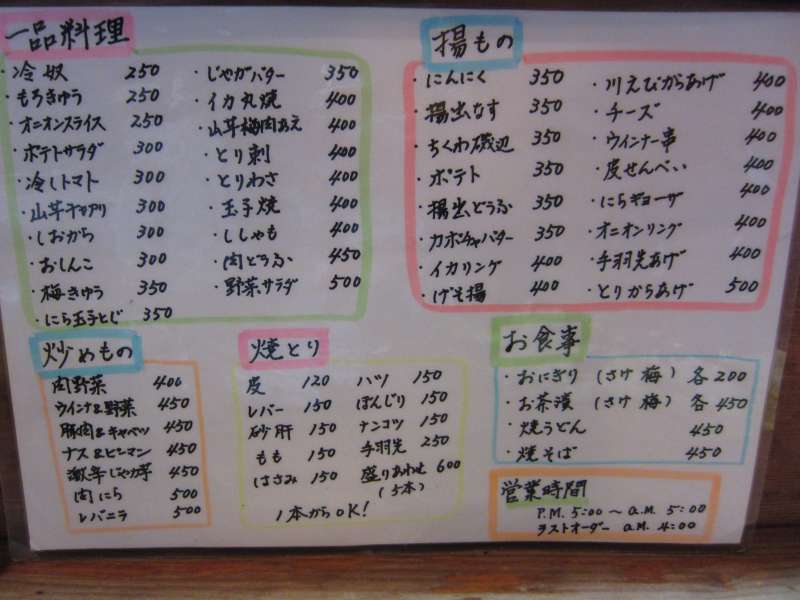 一品料理
・冷奴 250
・もろきゅう 250
・オニオンスライス 250
・ポテトサラダ 300
・冷しトマト 300
・山芋千切り 300
・しおから 300
・おしんこ 300
・梅きゅう 350
・にら玉子とじ 350
・じゃがバター 350
・イカ丸焼 400
・山芋梅肉あえ 400
・とり刺 400
・とりわさ 400
・玉子焼 400
・ししゃも 400
・肉どうふ 450
・野菜サラダ 500
揚もの
・にんにく 350
・揚出なす 350
・ちくわ磯辺 350
・ポテト 350
・揚出どうふ 350
・カボチャバター 350
・イカリング 400
・げそ揚 400
・川えびからあげ 400
・チーズ 400
・ウインナー串 400
・皮せんべい 400
・にらギョーザ 400
・オニオンリング 400
・手羽先あげ 400
・とりからあげ 500
炒めもの
肉野菜 400
ウインナ&野菜 450
豚肉&キャベツ 450
ナス&ピーマン 450
激辛じゃが芋 450
肉にら 500
レバニラ 500
焼とり
皮 120
レバー 150
砂肝 150
もも 150
はさみ 150
ハツ 150
ぼんじり 150
ナンコツ 150
手羽先 250
盛りあわせ 600
(5本)
1本からOK!
お食事
・おにぎり (さけ 梅) 各200
・お茶漬 (さけ 梅) 各450
・焼うどん 450
・焼そば 450
営業時間
P.M. 5:00 〜 a.M. 5:00
ラストオーダー a.M. 4:00